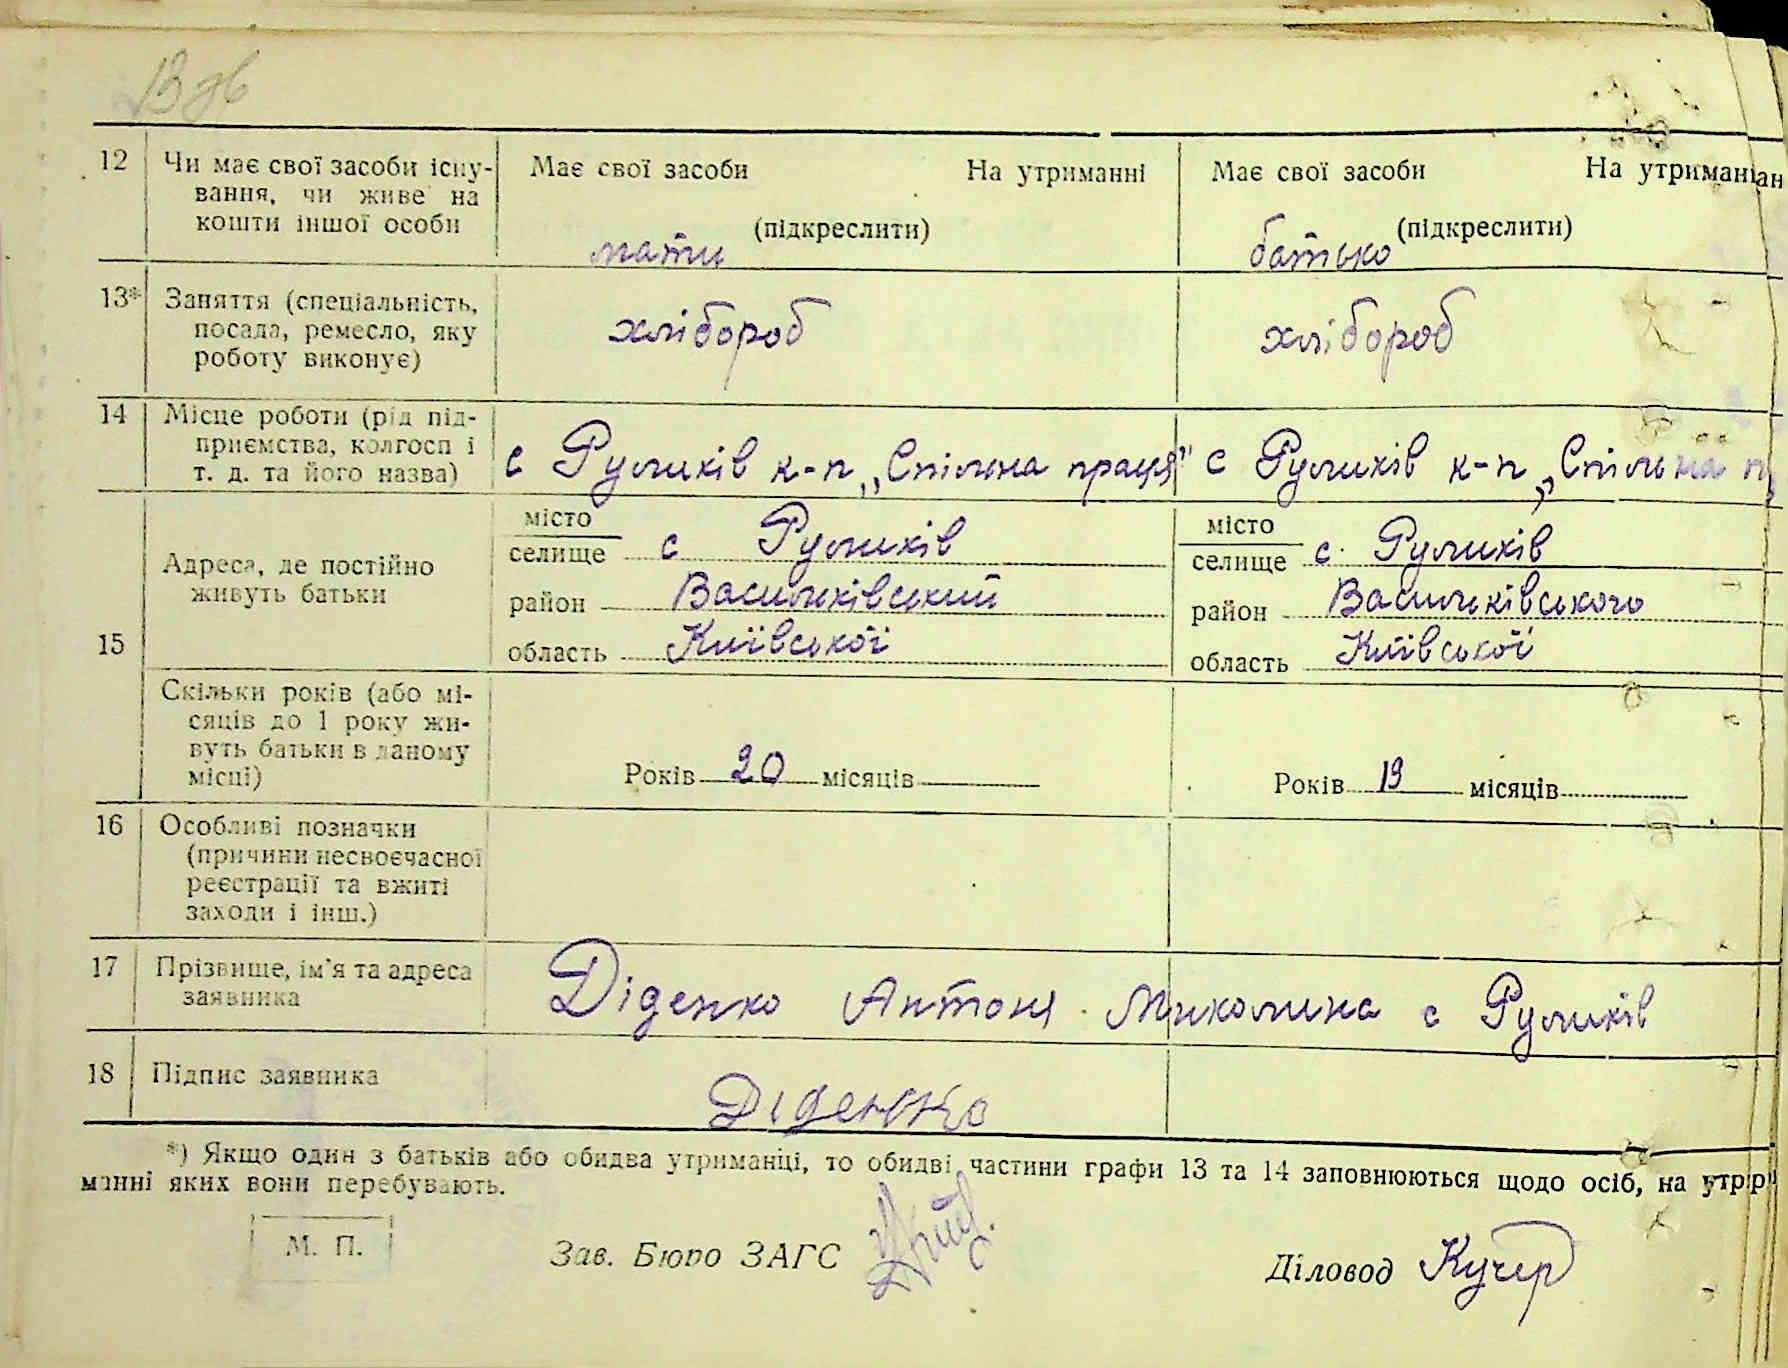 13 зв
12 Чи має свої засоби існу- Має свої засоби На утриманні Має свої засоби На утриманні
вання, чи живе на
кошти іншої особи (підкреслити) (підкреслити)
мати батько
13* Заняття (спеціальність,
посада, ремесло, яку хлібороб хлібороб
роботу виконує)
14 Місце роботи (рід під-
приємства, колгосп і с Руликів к-п „Спільна праця" с Руликів к-п „Спільна п
т. д. та його назва)
місто с Руликів місто с. Руликів
селище селище
Адреса, де постійно
живуть батьки район Васильківський район Васильківського
15 область Київської область Київської
Скільки років (або мі-
сяців до 1 року жи-
вуть батьки в даному
місці) Років 20 місяців Років 19 місяців
16 Особливі позначки
(причини несвоєчасної
реєстрації та вжиті
заходи і інш.)
17 Прізвище, ім'я та адреса Діденко Антоня Миколина с Руликів
заявника
18 Підпис заявника Діденко
*) Якщо один з батьків або обидва утриманці, то обидві частини графи 13 та 14 заповнюються щодо осіб, на утри
манні яких вони перебувають.
М. П. Зав. Бюро ЗАГС Діловод Кучер